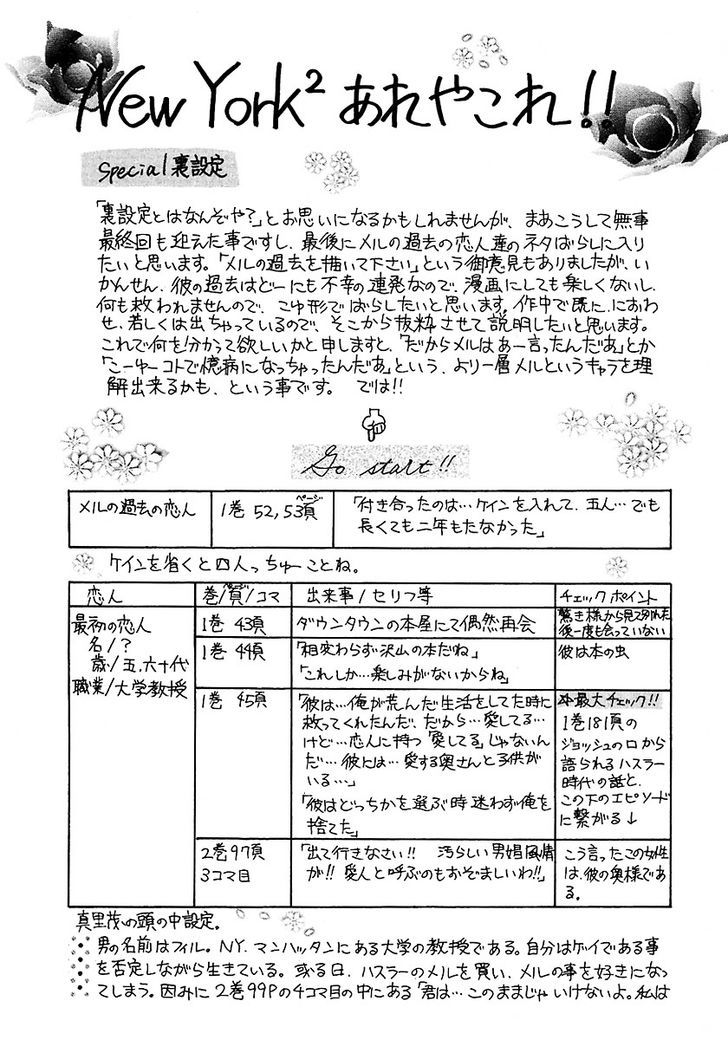 New York² あれやこれ!!
Special 裏設定
「裏設定とはなんぞや?」とお思いになるかもしれませんが、まあこうして無事
最終回も迎えた事ですし、最後にメルの過去の恋人達のネタばらしに入り
たいと思います。「メルの過去を描いて下さい」という御意見もありましたが、い
かんせん、彼の過去はどーにも不幸の連発なので、漫画にしても楽しくないし、
何も救われませんので、こゆ形でばらしたいと思います。作中で既に、におわ
せ、若しくは出ちゃっているので、そこから抜粋させて説明したいと思います。
これで何を分かって欲しいかと申しますと、「だからメルはあー言ったんだあ」とか
「こーゆーコトで臆病になっちゃったんだあ」という、より一層メルというキャラを理
解出来るかも、という事です。 では!!
Go start!!
メルの過去の恋人
1巻 52,53頁
ページ
「付き合ったのは…ケインを入れて、五人…でも
長くても二年もたなかった」
ケインを省くと四人っちゅーことね。
恋人
巻/頁/コマ
出来事/セリフ等
チェックポイント
最初の恋人
名/?
歳/五、六十代
職業/大学教授
1巻 43頁
ダウンタウンの本屋にて偶然再会
驚き様から見て別れた
後一度も会っていない
1巻 44頁
「相変わらず沢山の本だね」
「これしか…楽しみがないからね」
彼は本の虫
1巻 45頁
「彼は…俺が荒んだ生活をしてた時に
救ってくれたんだ、だから…愛してる…
けど…恋人に持つ「愛してる」じゃないん
だ…彼には…愛する奥さんと子供が
いる…」
「彼はどっちかを選ぶ時迷わず俺を
捨てた」
最大チェック!!
1巻181頁の
ジョッシュの口から
語られるハスラー
時代の話と、
この下のエピソード
に繋がる↓
2巻97頁
3コマ目
「出て行きなさい!! 汚らしい男娼風情
が!! 愛人と呼ぶのもおぞましいわ!!」
こう言ったこの女性
は、彼の奥様であ
る。
真里茂の頭の中設定。
男の名前はフィル。NY.マンハッタンにある大学の教授である。自分はゲイである事
を否定しながら生きている。或る日、ハスラーのメルを買い、メルの事を好きになっ
てしまう。因みに2巻99Pの4コマ目の中にある「君は…このままじゃいけないよ。私は